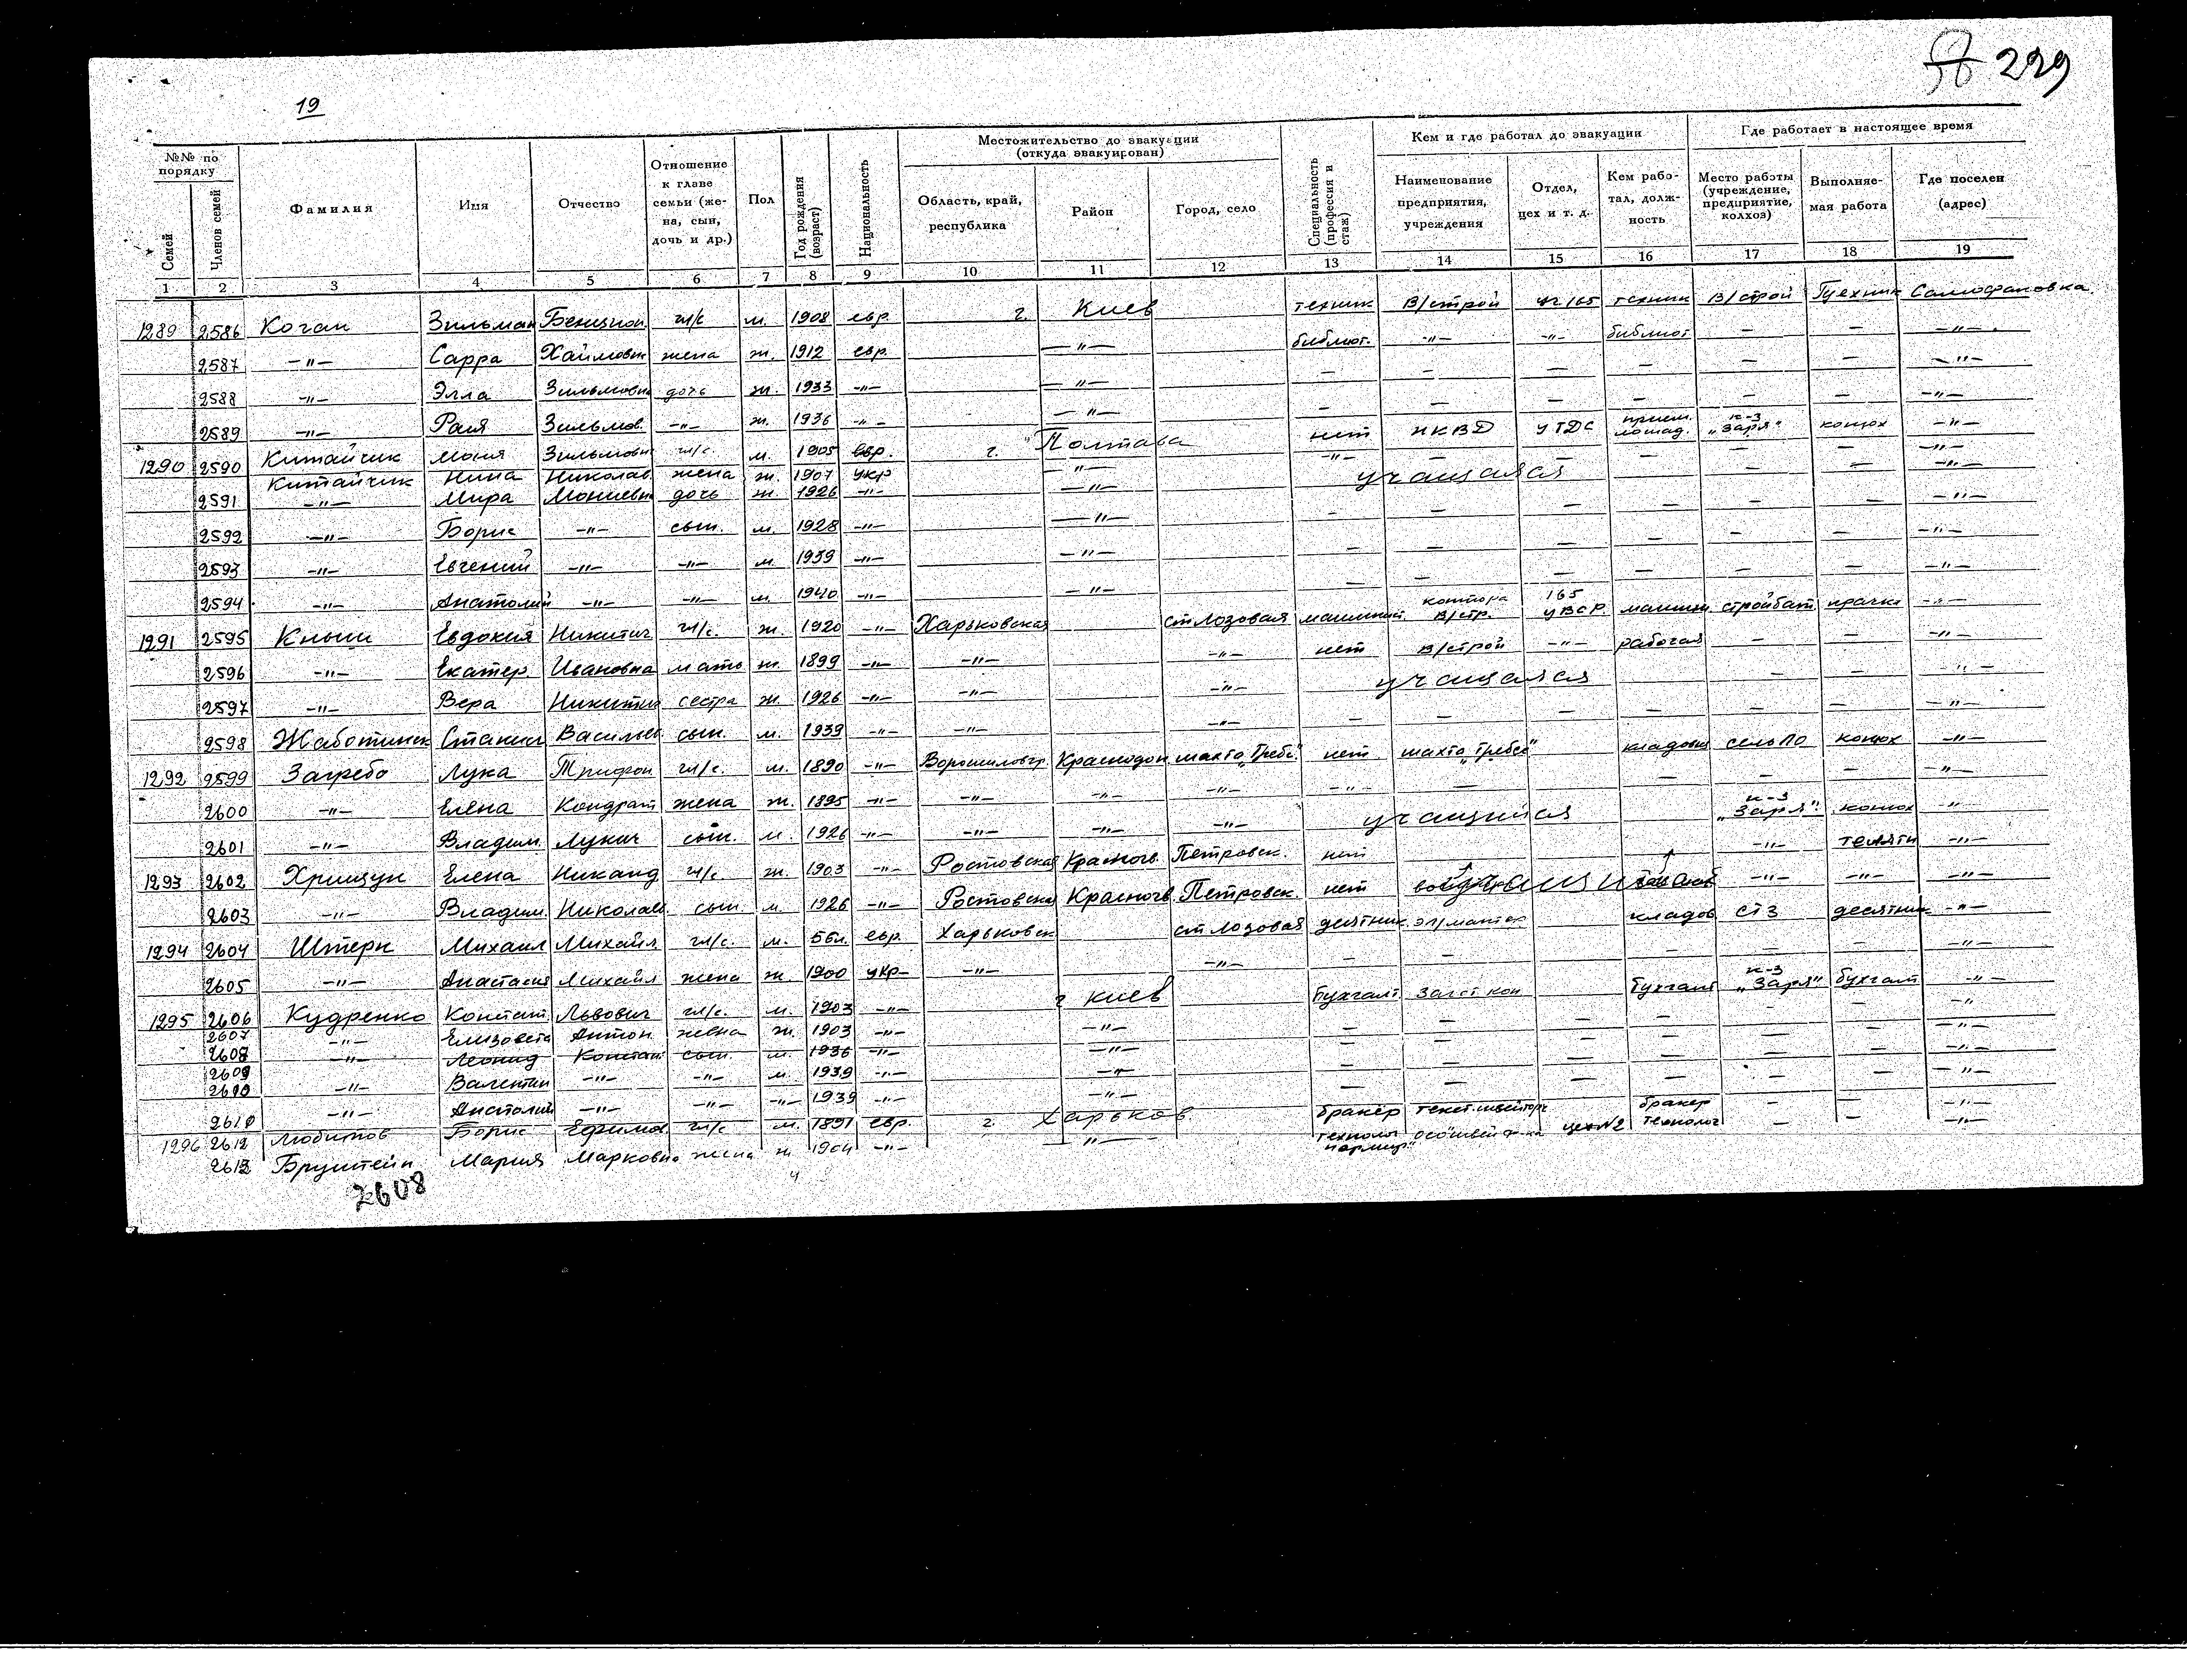 229
19
№№ по порядку
Семей
Членов семей
Фамилия
Имя
Отчество
Отношение к главе семьи (жена, сын, дочь и др.)
Пол
Год рождения (возраст)
Национальность
Местожительство до эвакуации (откуда эвакуирован)
Область, край, республика
Район
Город, село
Специальность (профессия и стаж)
Кем и где работал до эвакуации
Наименование предприятия, учреждения
Отдел, цех и т. д.
Кем работал, должность
Где работает в настоящее время
Место работы (учреждение, предприятие, колхоз)
Выполняемая работа
Где поселен (адрес)
1 2 3 4 5 6 7 8 9 10 11 12 13 14 15 16 17 18 19
1289 2586 Коган Зильман Бенцион. гл/с м. 1908 евр. г. Киев техник В/строй уч 165 техник В/строй
2587 -"- Сарра Хаимовн жена ж. 1912 евр. -"- библиот. -"- -"- библиот — — -"-
2588 -"- Элла Зильмовн дочь ж. 1933 -"- -"- — — — — — — -"-
2589 -"- Рая Зильмов. -"- ж. 1936 -"- -"- — — — — — — -"-
1290 2590 Китайчик Моня Зильмовн гл/с. м. 1905 евр. г. Полтава нет НКВД прием. лошад. к-з "Заря" конюх -"-
Китайчик Нина Николав. жена ж. 1907 укр -"- -"- — — — — — -"-
2591 -"- Мира Мониевн дочь ж. 1926 -"- -"- учащаяся — — -"-
2592 -"- Борис -"- сын. м. 1928 -"- -"- — — — — — — -"-
2593 -"- Евгений -"- -"- м. 1939 -"- -"- — — — — — — -"-
2594 -"- Анатолий -"- -"- м. 1940 -"- -"- — — — — — — -"-
1291 2595 Кныш Евдокия Никитич гл/с. ж. 1920 -"- Харьковская ст Лозовая контора В/стр. 165 УВСР стройбат. прачка -"-
2596 -"- Екатер. Ивановна мать ж. 1899 -"- -"- -"- нет В/строй -"- рабочая — — -"-
2597 -"- Вера Никитич сестра ж. 1926 -"- -"- -"- учащаяся — — -"-
2598 Жаботинск Станисл Васильев сын. м. 1939 -"- -"- -"- — — — — — — -"-
1292 2599 Загребо Лука Трифон гл/с. м. 1890 -"- Ворошиловгр. Краснодон нет сельПО конюх -"-
2600 -"- Елена Кондрат жена ж. 1895 -"- -"- -"- -"- -"- — — — — -"-
2601 -"- Владим. Лукич сын. м. 1926 -"- -"- -"- -"- учащийся к-з "Заря" конюх -"-
1293 2602 Хрищун Елена Никанд гл/с ж. 1903 -"- Ростовская Красногв. Петровск. нет -"- телятн -"-
2603 -"- Владим. Николаев. сын. м. 1926 -"- Ростовская Красногв Петровск. нет -"- -"- -"-
1294 2604 Штерн Михаил Михайл гл/с. м. 56л. евр. Харьковск ст Лозовая десятник кладов СТЗ десятник -"-
2605 -"- Анастасия Михайл жена ж. 1900 укр- -"- -"- — — — — — -"-
1295 2606 Кудренко Констат Львович гл/с. м. 1903 -"- г Киев Бухгалт. Загот кон Бухгалт к-з "Заря" бухгалт -"-
2607 -"- Елизовета Антон. жена ж. 1903 -"- -"- — — — — — — -"
2608 -"- Леонид Констан сын. м. 1936 -"- -"- — — — — — — -"-
2609 2610 -"- Валентин -"- -"- м. 1939 -"- -"- — — — — — — -"-
2610 -"- Анатолий -"- -"- -"- 1939 -"- -"- — — — — — — -"-
1296 2612 Любитов Борис Ефимов. гл/с м. 1891 евр. г. Харьков бракер бракер — — -"-
2613 Брунштейн Мария Марковна жена ж 1904 -"- -"- технолог цех №2 технолог — — -"-
2608